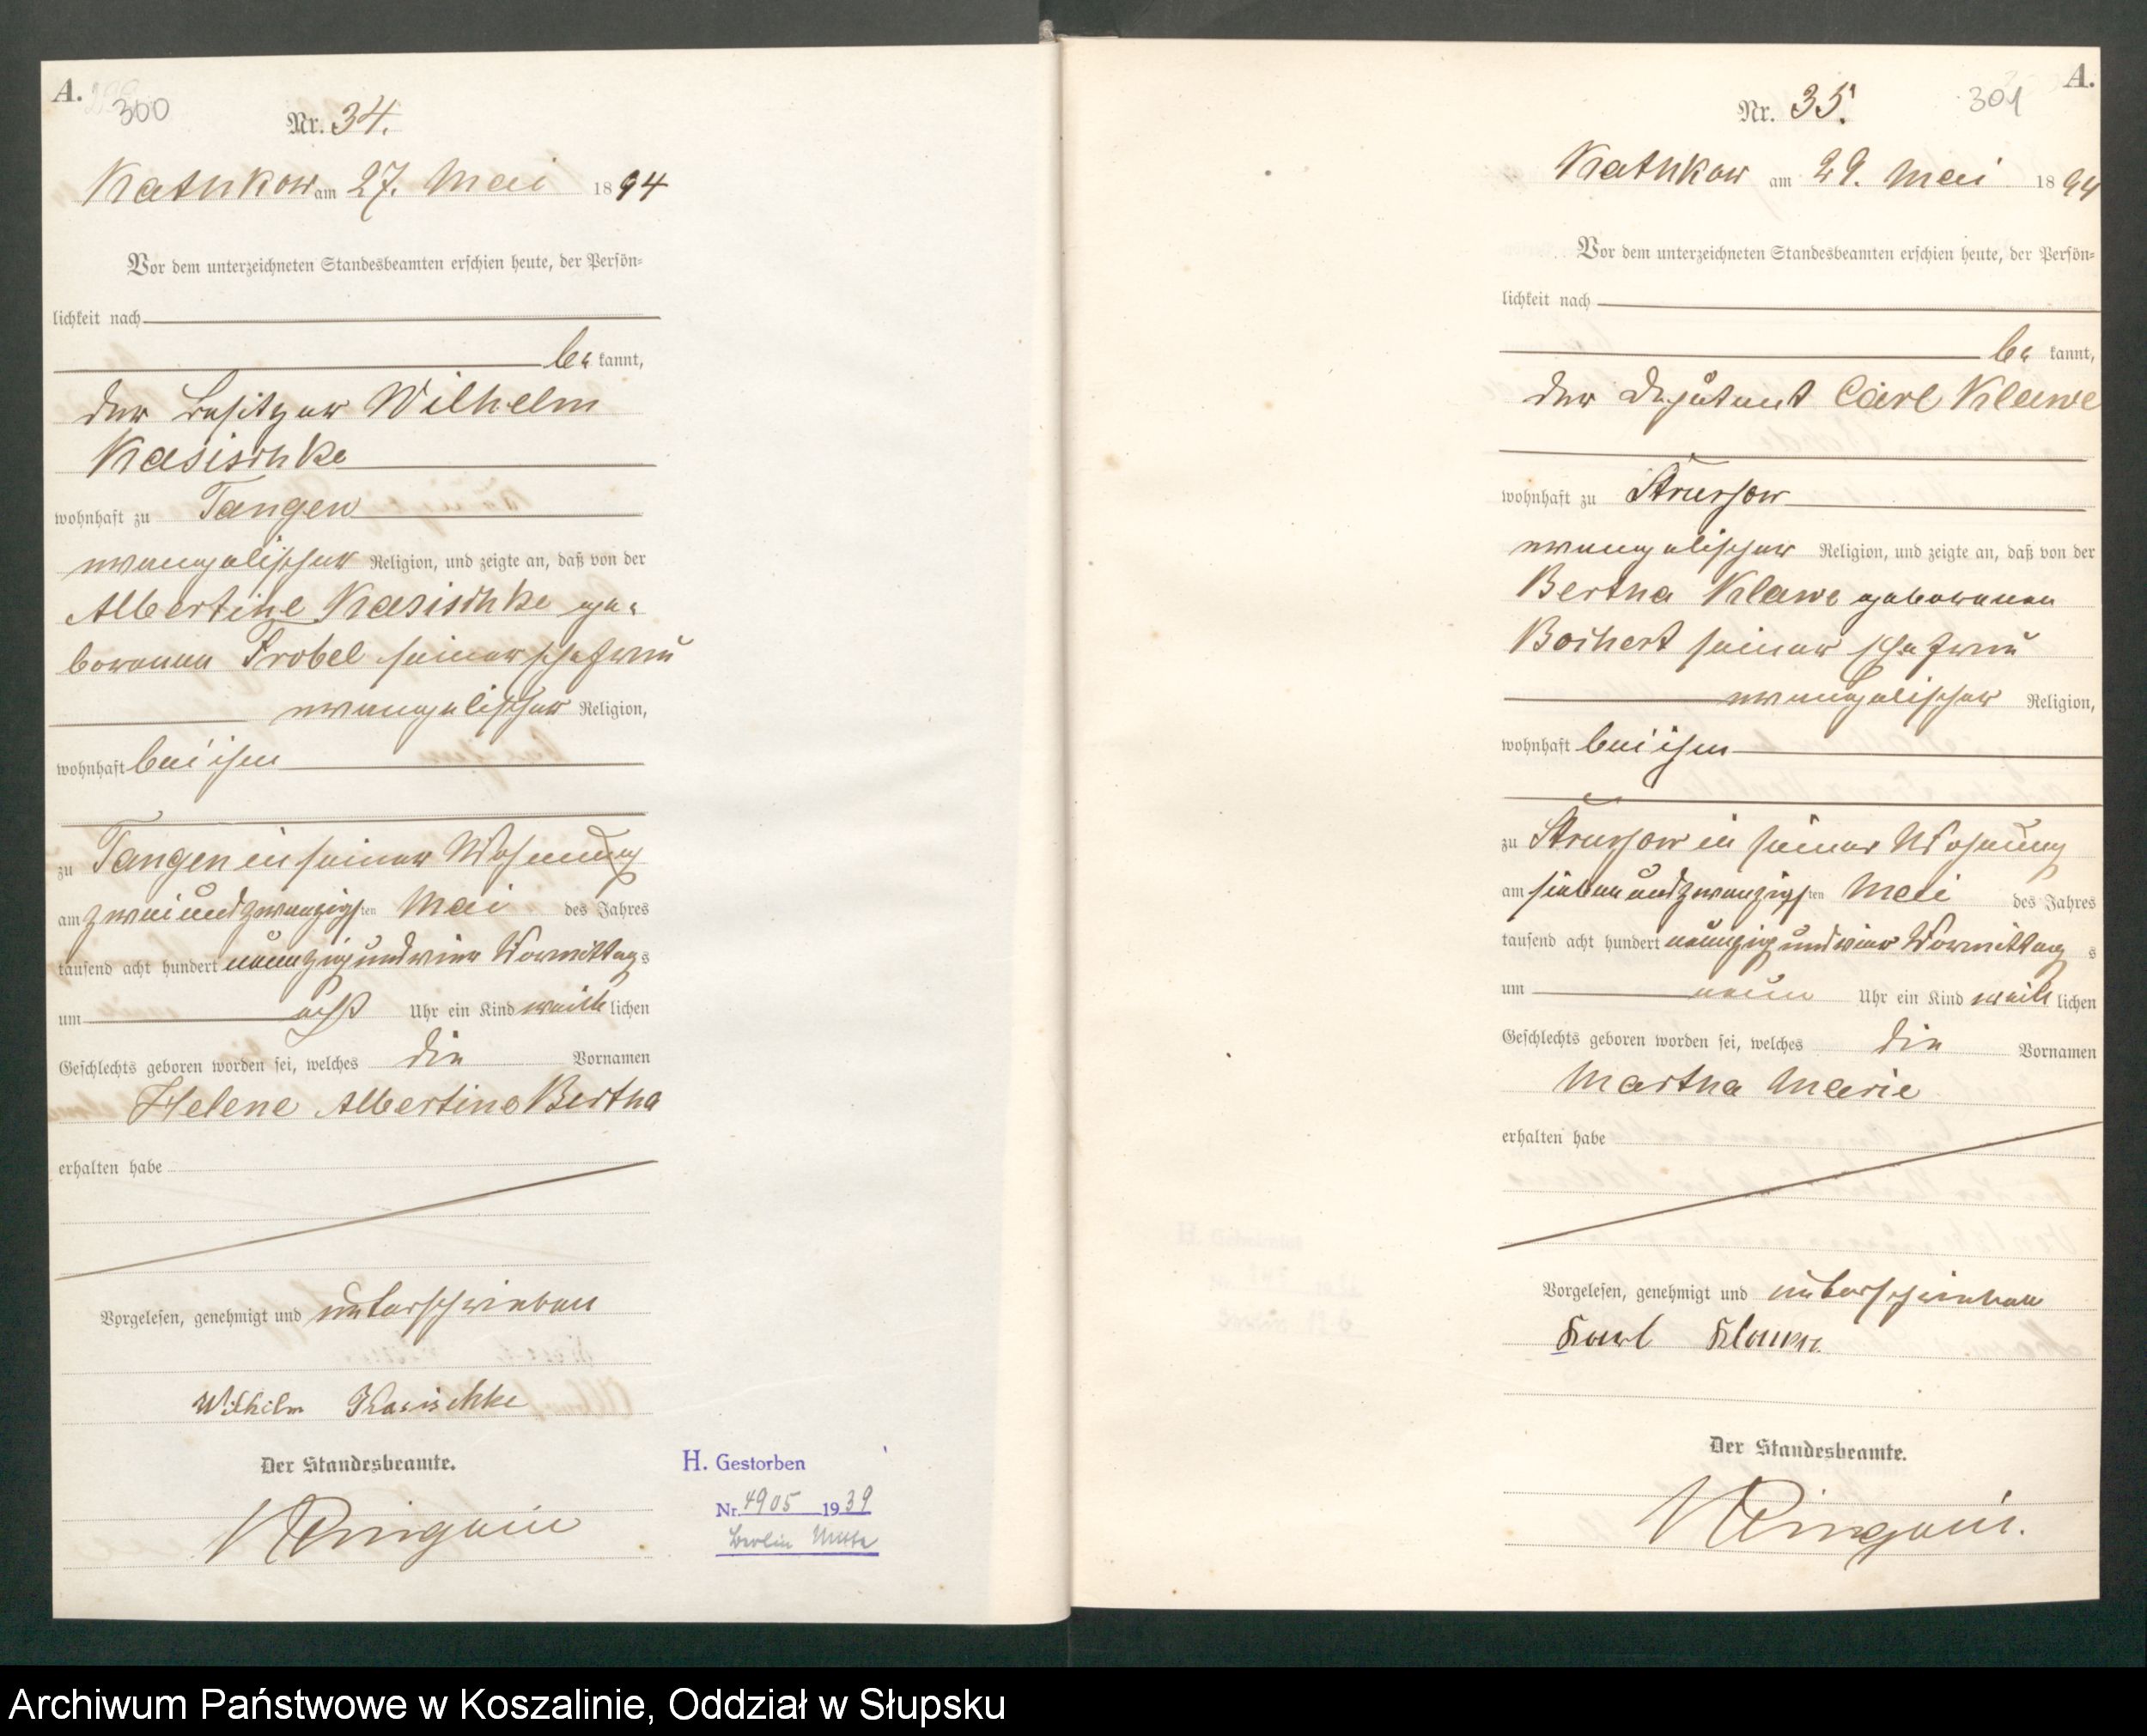 A.
300
Nr. 34.
Kathkow am 27. Mai 1894
Vor dem unterzeichneten Standesbeamten erschien heute, der Persön-
lichkeit nach
be kannt,
der Besitzer Wilhelm
Kasischke
wohnhaft zu Tangen
evangelischer Religion, und zeigte an, daß von der
Albertine Kasischke ge-
borenen Trobel seiner Ehefrau
evangelischer Religion,
wohnhaft bei ihm
zu Tangen in seiner Wohnung
am zweiundzwanzigsten Mai des Jahres
tausend acht hundert neunzig und vier Vormittags
um acht Uhr ein Kind weiblichen
Geschlechts geboren worden sei, welches die Vornamen
Helene Albertine Bertha
erhalten habe
Vorgelesen, genehmigt und unterschrieben
Wilhelm Kasischke
Der Standesbeamte.
H. Gestorben
Nr. 4905 1939
Berlin Mitte
A.
301
Nr. 35.
Kathkow am 29. Mai 1894
Vor dem unterzeichneten Standesbeamten erschien heute, der Persön-
lichkeit nach
be kannt,
der Deputant Carl Klawe
wohnhaft zu Strussow
evangelischer Religion, und zeigte an, daß von der
Bertha Klawe geborenen
Borchert seiner Ehefrau
evangelischer Religion,
wohnhaft bei ihm
zu Strussow in seiner Wohnung
am siebenundzwanzigsten Mai des Jahres
tausend acht hundert neunzig und vier Vormittags
um neun Uhr ein Kind weiblichen
Geschlechts geboren worden sei, welches die Vornamen
Martha Marie
erhalten habe
Vorgelesen, genehmigt und unterschrieben
Karl Klawe
Der Standesbeamte.
Archiwum Państwowe w Koszalinie, Oddział w Słupsku